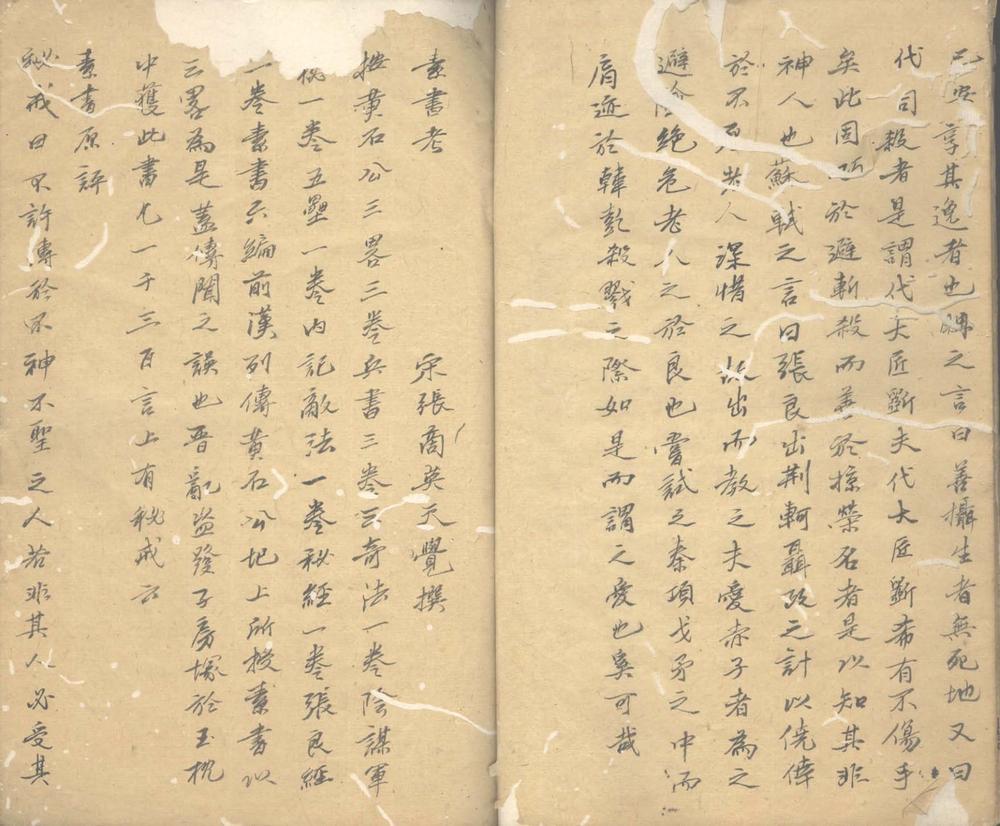 享其逸者也聃之言曰善攝生者無死地又曰
代司殺者是謂代大匠斲夫代大匠斲希有不傷手
矣此固巧於避斬殺而善於掠榮名者是以知其非
神人也蘇軾之言曰張良出荆軻聶政之計以僥倖
於不死老人深惜之故出而教之夫愛赤子者為之
避險絶危老人之於良也嘗試之秦項戈矛之中而
肩迹於韓彭殺戮之際如是而謂之愛也奚可哉
素書考
宋張商英天覺撰
按黄石公三畧三卷兵書三卷三奇法一卷陰謀軍
秘一卷五壘一卷内記敵法一卷秘經一卷張良經
一卷素書六編前漢列傳黄石公圯上所授素書以
三畧為是蓋傳聞之誤也晋亂盗發子房塚於玉枕
中獲此書凡一千三百言上有秘戒云
素書原評
秘戒曰不許傳於不神不聖之人若非其人必受其